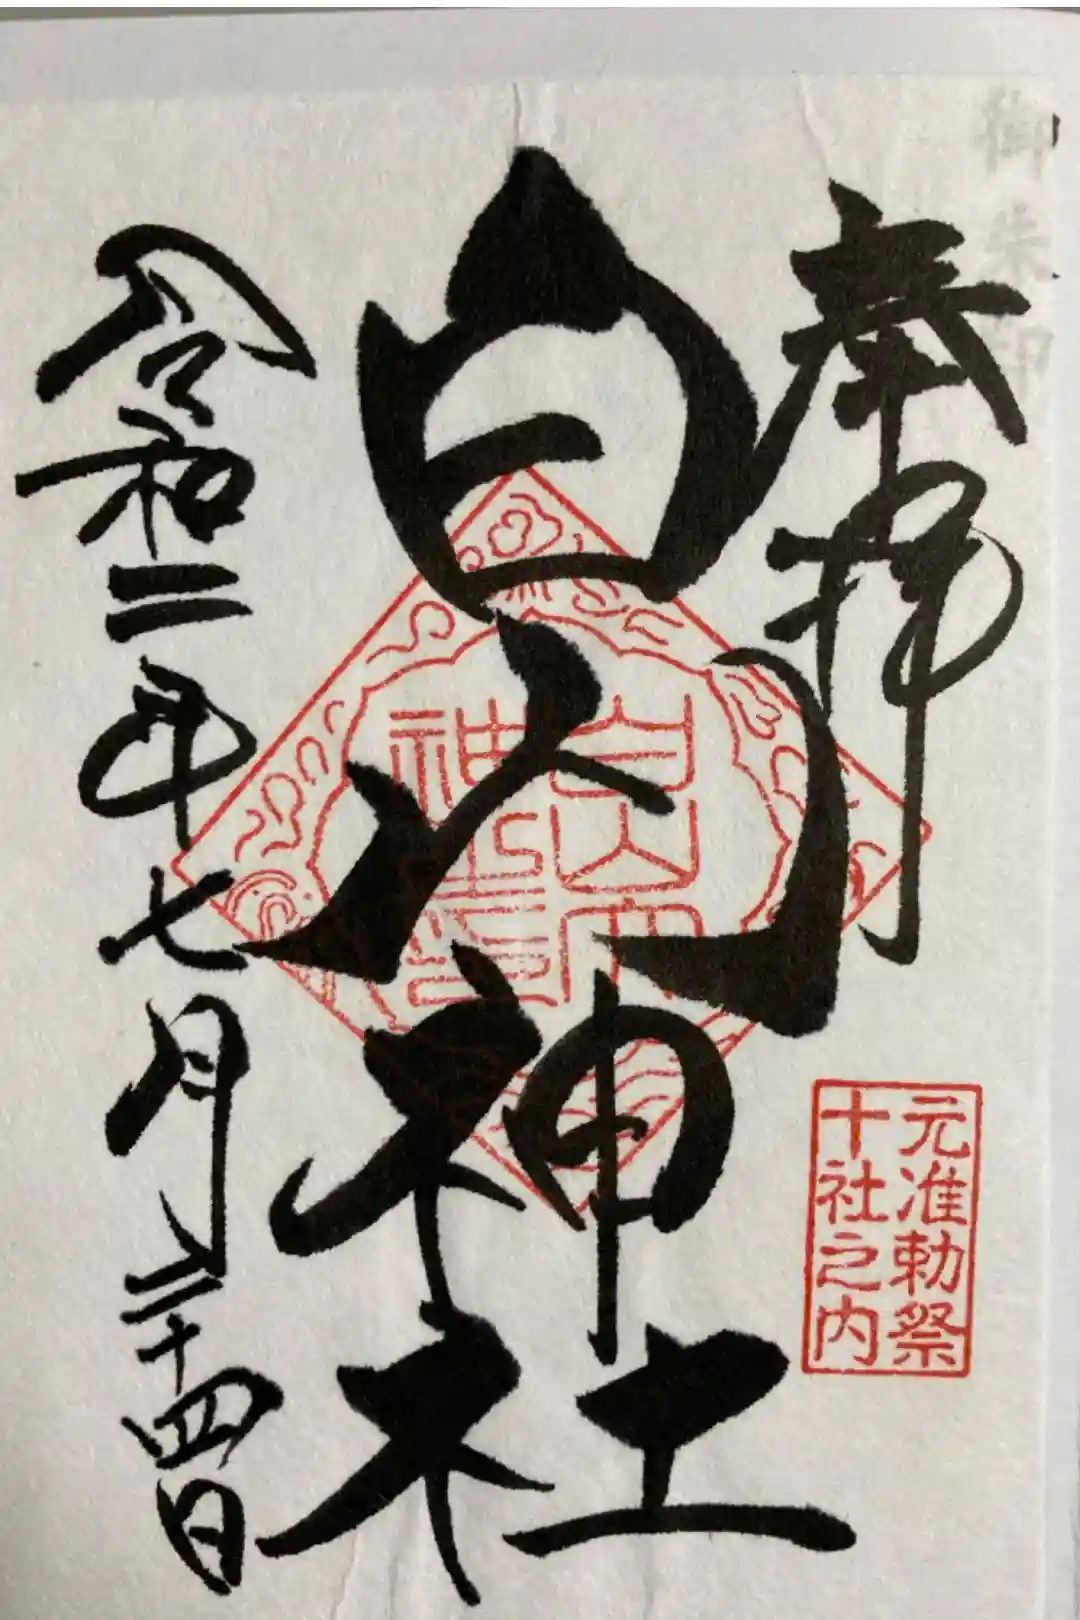 奉拝
元准勅祭
十社之内
白山神社
白山神社之印
令和二年七月二十四日